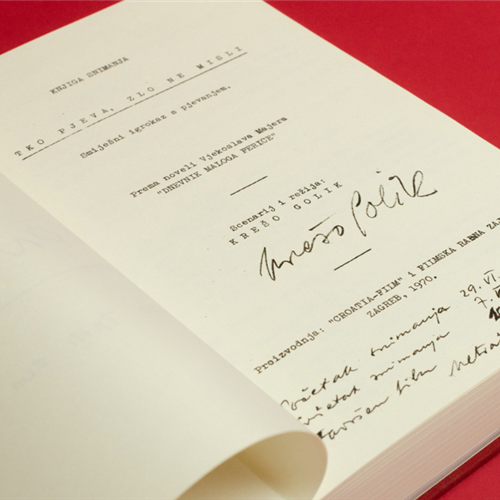 KNJIGA SNIMANJA
TKO PJEVA, ZLO NE MISLI
Smiješni igrokaz s pjevanjem.
Prema noveli Vjekoslava Majera
"DNEVNIK MALOGA PERICE"
Scenarij i režija:
KREŠO GOLIK
Krešo Golik
Proizvodnja: "CROATIA-FILM" i FILMSKA RADNA ZAJ
ZAGREB, 1970.
Početak snimanja 29. VI.
snimanja 7.
film